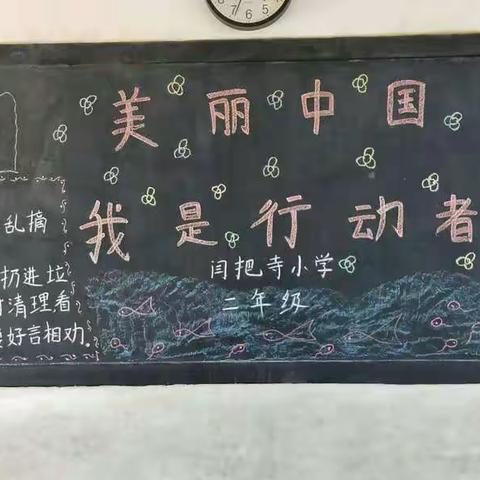 美丽中国
我是行动者
闫把寺小学
二年级
乱摘
扔进垃
清理,看
好言相劝。